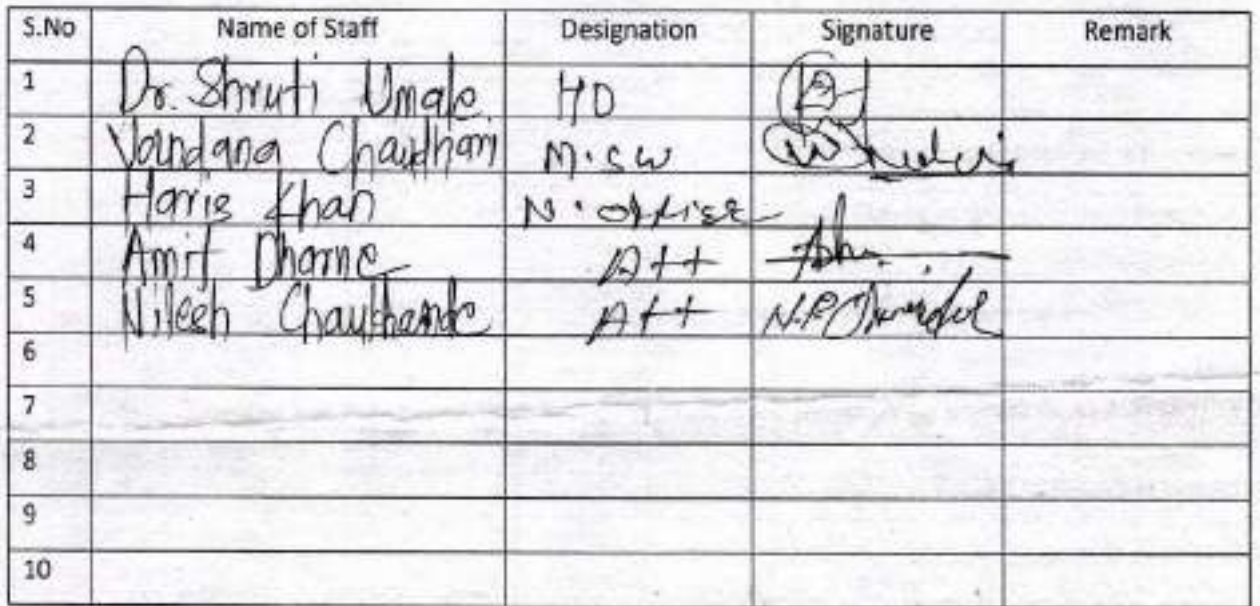 S.No Name of Staff Designation Signature Remark
1 Dr. Shruti Umale HO
2 Vandana Chaudhari M.S.W
3 Harris Khan N. Offise
4 Amit Dharne Att
5 Nilesh Att
6
7
8
9
10